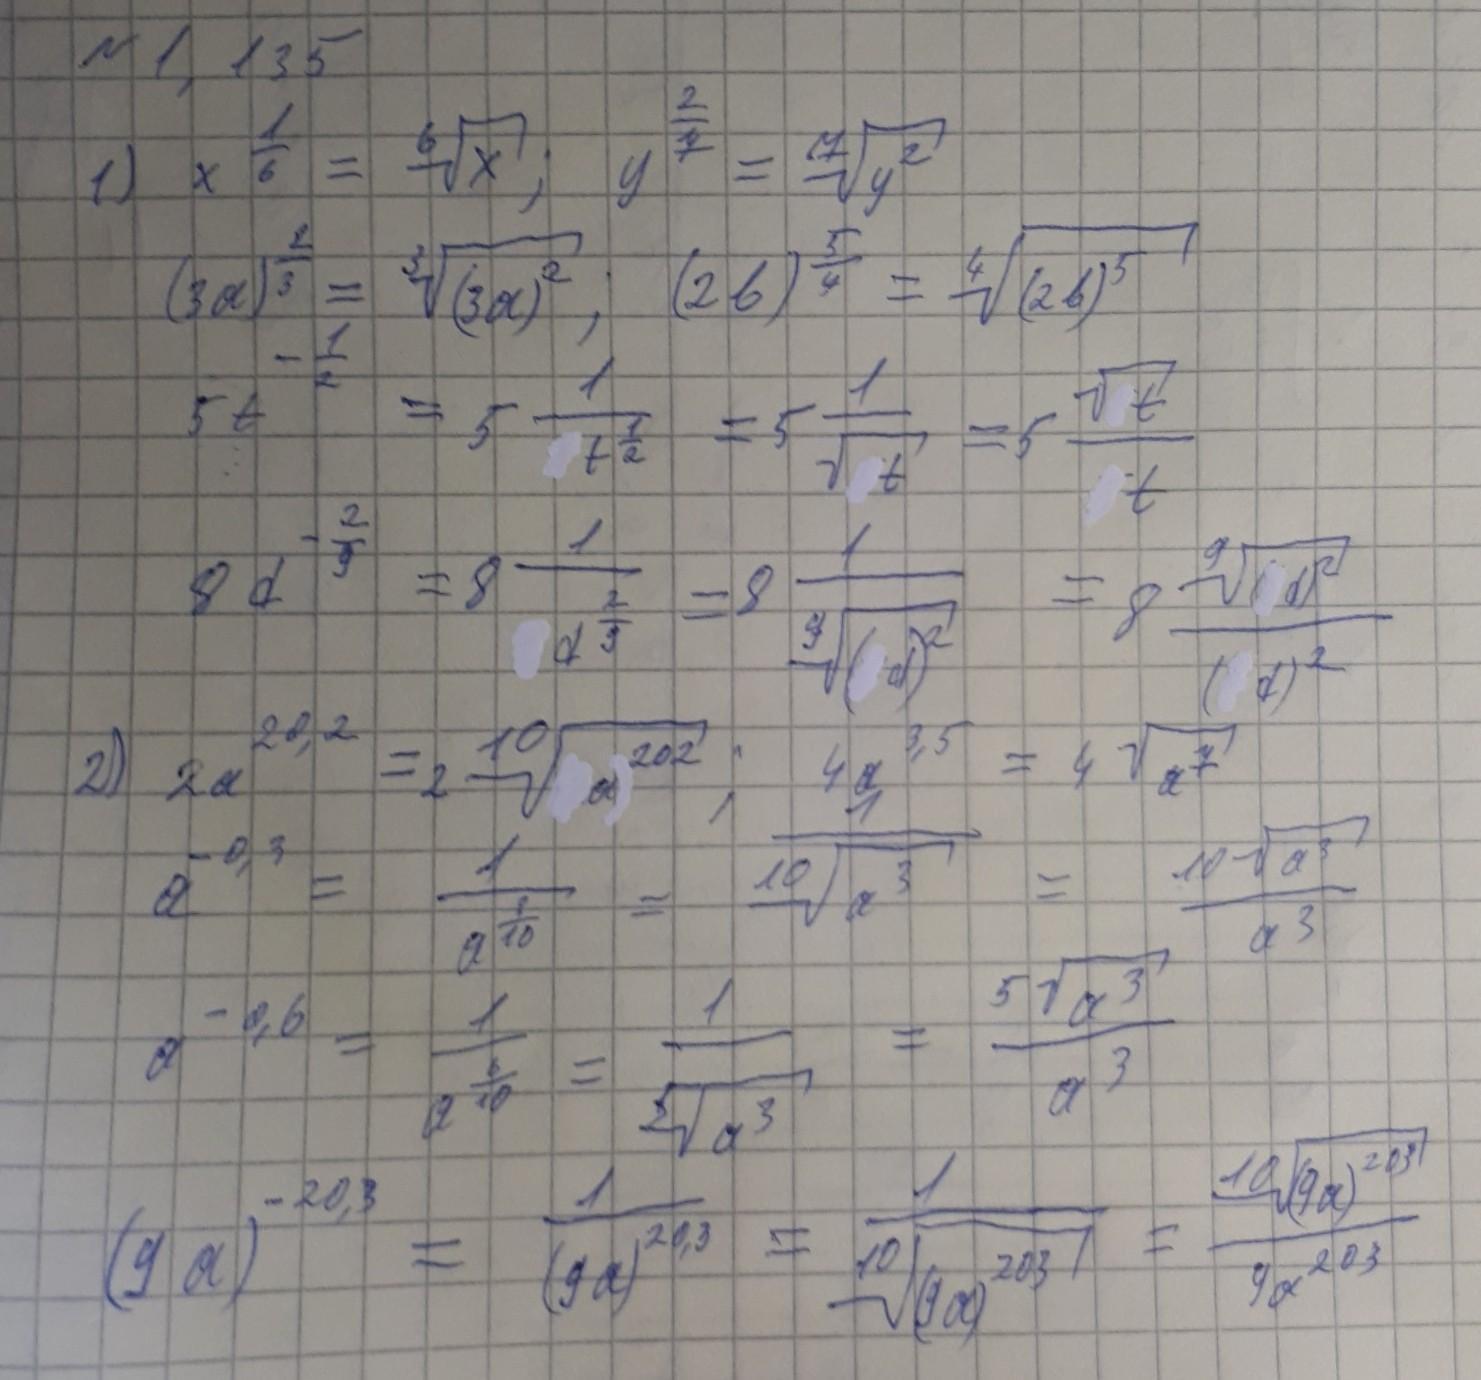 № 1,135
1) x^(1/6) = ⁶√x; y^(2/7) = ⁷√(y²)
(3a)^(2/3) = ³√((3a)²); (2b)^(5/4) = ⁴√((2b)⁵)
5t^(-1/2) = 5 1/t^(1/2) = 5 1/√t = 5 √t/t
8d^(-2/9) = 8 1/d^(2/9) = 8 1/⁹√((d)²) = 8 ⁹√(d)²/(d)²
2) 2a^(20,2) = 2 ¹⁰√(a)^202; 4a^(3,5) = 4 √(a⁷)
a^(-0,3) = 1/a^(3/10) = 1/¹⁰√(a³) = ¹⁰√(a³)/a³
a^(-0,6) = 1/a^(6/10) = 1/⁵√(a³) = ⁵√(a³)/a³
(9a)^(-20,3) = 1/(9a)^(20,3) = 1/¹⁰√((9a)^203) = ¹⁰√((9a)^203)/9a^203